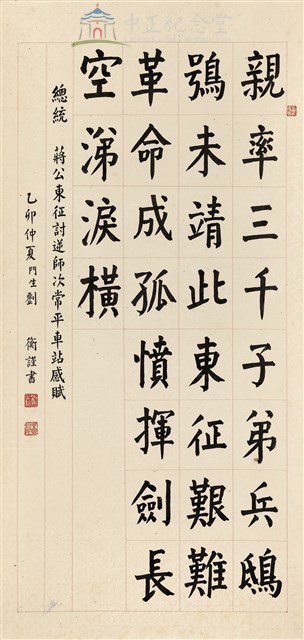 中正紀念堂
親率三千子弟兵鴟
鴞未靖此東征艱難
革命成孤憤揮劍長
空淚淚橫
總統 蔣公東征討逆師次常平車站感賦
乙卯仲夏門生劉 衡謹書